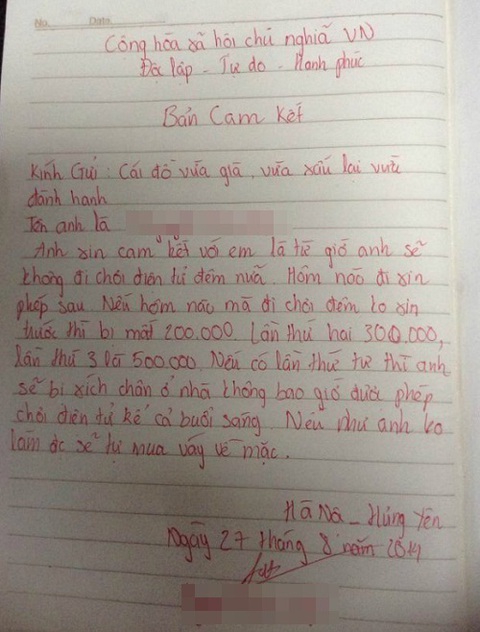 No.   Date
Cộng hòa xã hội chủ nghiã VN
Độc lập - Tự do - Hạnh phúc
Bản Cam Kết
Kính Gửi : Cái đồ vừa già, vừa xấu lại vừa
đành hanh
Tên anh là
Anh xin cam kết với em là từ giờ anh sẽ
không đi chơi điện tử đêm nữa. Hôm nào đi xin
phép sau. Nếu hôm nào mà đi chơi đêm ko xin
trước thì bị mất 200.000. Lần thứ hai 300.000,
lần thứ 3 là 500.000. Nếu có lần thứ tư thì anh
sẽ bị xích chân ở nhà không bao giờ được phép
chơi điện tử kể cả buổi sáng. Nếu như anh ko
làm đc sẽ tự mua váy về mặc.
Hưng Yên
Ngày 27 tháng 8 năm 2014